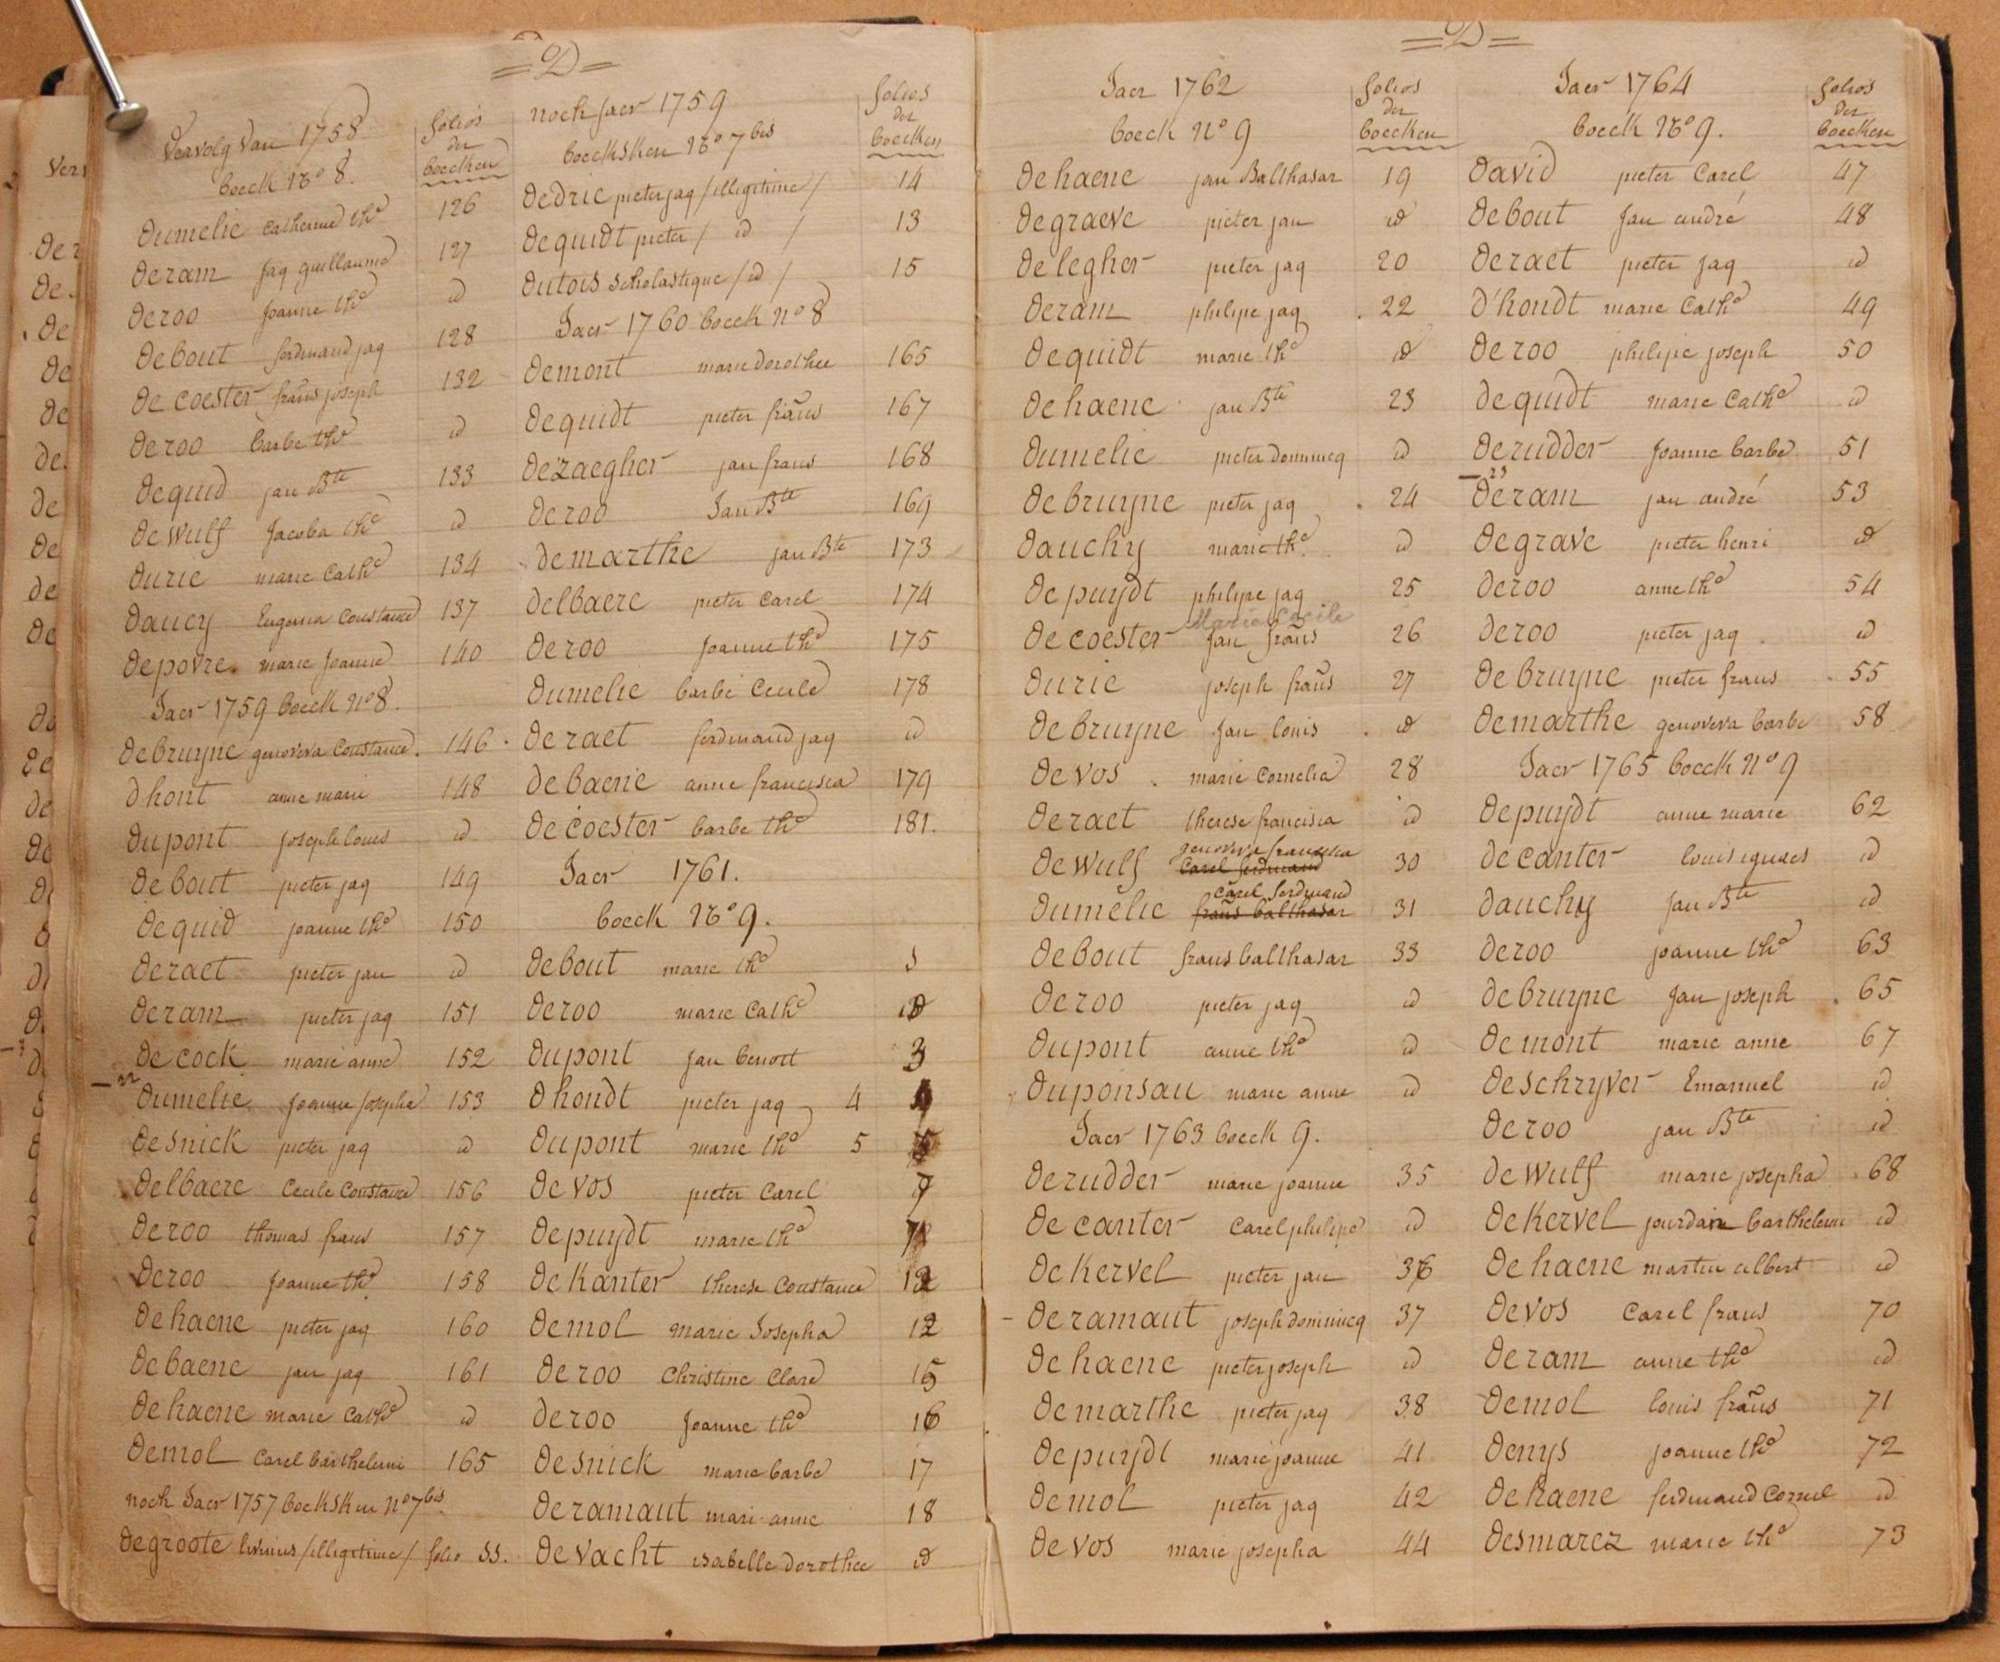 =D=
Vervolg van 1758
boeck N° 8.
folios
der
boecken
dumelie catherine th^e 126
deram jaq guillaume 127
deroo joanne th^e id
debout ferdinand jaq 128
de coester frans joseph 132
deroo barbe th^e id
dequid jan B^te 133
de wulf Jacoba th^e id
durie marie Cath^e 134
daucy Eugenia Constance 137
depovre. marie joanne 140
Jaer 1759 boeck N° 8.
debruyne genoveva Constance. 146
dhont anne marie 148
dupont joseph louis id
debout pieter jaq 149
dequid joanne th^e 150
deraet pieter jan id
deram pieter jaq 151
de cock marie anne 152
— 22
dumelie joanne josepha 153
desnick pieter jaq id
delbaere Cecile Constance 156
deroo thomas frans 157
deroo joanne th^e 158
de haene pieter jaq 160
debaene jan jaq 161
de haene marie Cath^e id
demol Carel barthelemi 165
noch Jaer 1757 boecksken n° 7 bis.
degroote livinus /illigitime/ folio 55.
noch jaer 1759
boecksken N° 7 bis
folios
der
boecken
dedrie pieter jaq /illigitime/ 14
dequidt pieter / id / 13
dutois scholastique / id / 15
Jaer 1760 boeck n° 8
demont marie dorothee 165
dequidt pieter frans 167
dezaegher jan frans 168
deroo Jan B^te 169
demarthe jan B^te 173
delbaere pieter Carel 174
deroo joanne th^e 175
dumelie barbe Cecile 178
deraet ferdinand jaq id
debaene anne francisca 179
de coester barbe th^e 181.
Jaer 1761.
boeck N° 9.
debout marie th^e
deroo marie Cath^e id
dupont jan benoit 3
dhondt pieter jaq 4
dupont marie th^e 5
de vos pieter Carel 7
depuydt marie th^e
de Kanter therese Constance 12
demol marie Josepha 12
deroo Christine Clare 15
deroo joanne th^e 16
desnick marie barbe 17
deramaut marie anne 18
de vacht isabelle dorothee id
=D=
Jaer 1762
boeck N° 9
folios
der
boecken
de haene jan Balthasar 19
degraeve pieter jan id
delegher pieter jaq 20
deram philipe jaq 22
dequidt marie th^e id
de haene jan B^te 23
dumelie pieter dominicq id
debruyne pieter jaq 24
dauchy marie th^e id
depuydt philipe jaq 25
Marie Cecile
de coester jan frans 26
durie joseph frans 27
debruyne jan louis id
de vos marie Cornelia 28
deraet therese francisca id
genoveva francisca
de wulf Carel ferdinand 30
Carel ferdinand
dumelie frans balthasar 31
debout frans balthasar 33
deroo pieter jaq id
dupont anne th^e id
duponsau marie anne id
Jaer 1763 boeck 9.
derudder marie joanne 35
de canter Carel philipe id
de kervel pieter jan 36
deramaut joseph dominicq 37
de haene pieter joseph id
demarthe pieter jaq 38
depuydt marie joanne 41
demol pieter jaq 42
de vos marie josepha 44
Jaer 1764
boeck N° 9.
folios
der
boecken
david pieter Carel 47
debout jan andré 48
deraet pieter jaq id
d'hondt marie Cath^e 49
deroo philipe joseph 50
dequidt marie Cath^e id
derudder joanne barbe 51
— 23
deram jan andré 53
degrave pieter henri id
deroo anne th^e 54
deroo pieter jaq id
debruyne pieter frans 55
demarthe genoveva barbe 58
Jaer 1765 boeck N° 9
depuydt anne marie 62
de canter louis ignaes id
dauchy jan B^te id
deroo joanne th^e 63
debruyne jan joseph 65
demont marie anne 67
deschryver Emanuel id
deroo jan B^te id
de wulf marie josepha 68
de Kervel jourdain barthelemi id
de haene martin albert id
devos Carel frans 70
deram anne th^e id
demol louis frans 71
denys joanne th^e 72
de haene ferdinand Cornel id
desmarez marie th^e 73